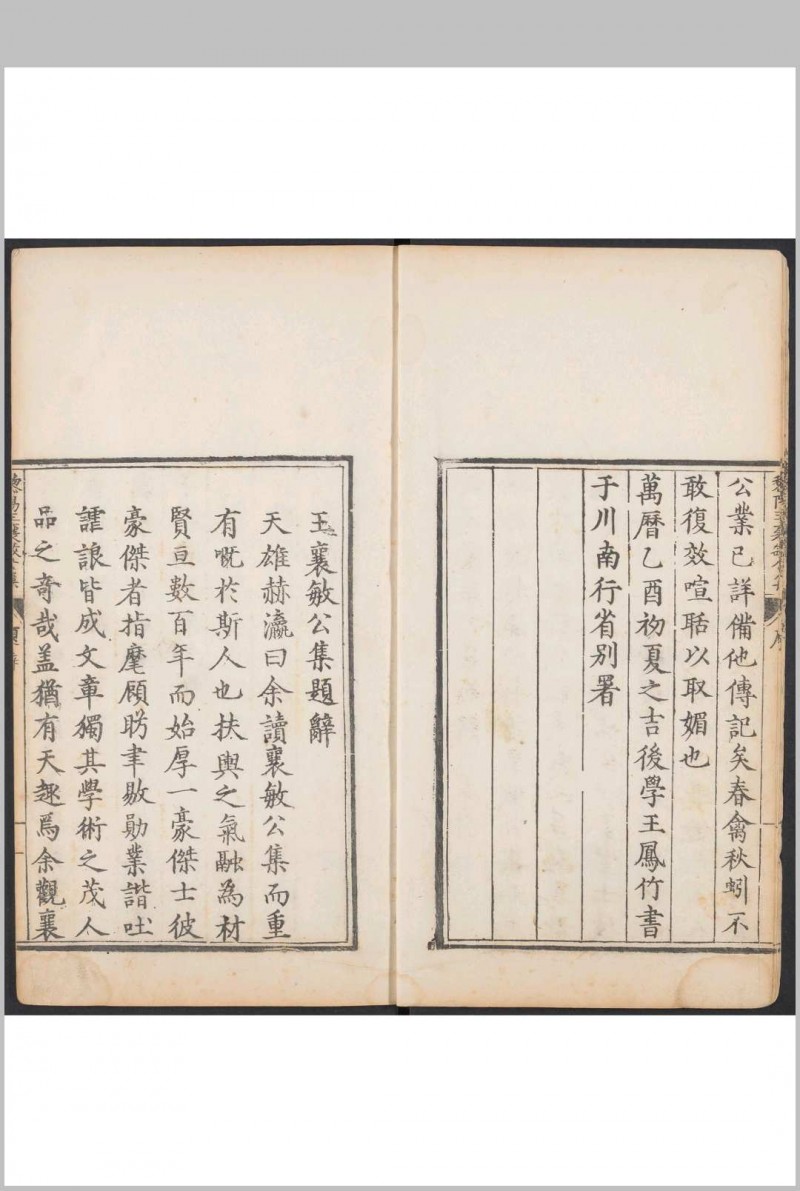 公業已詳備他傳記矣春禽秋蚓不
敢復效喧聒以取媚也
萬曆乙酉初夏之吉後學王鳳竹書
于川南行省別署
王襄敏公集題辭
天雄赫瀛曰余讀襄敏公集而重
有嘅於斯人也扶輿之氣融為材
賢亘數百年而始厚一豪傑士彼
豪傑者指麾顧眄聿敭勛業諧吐
謔誏皆成文章獨其學術之茂人
品之奇哉盖猶有天趣焉余觀襄